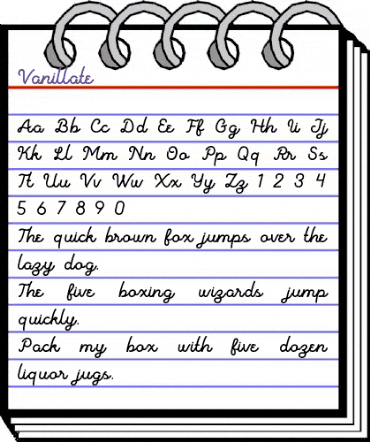 Vanillate
Aa Bb Cc Dd Ee Ff Gg Hh Ii Jj
Kk Ll Mm Nn Oo Pp Qq Rr Ss
Tt Uu Vv Ww Xx Yy Zz 1 2 3 4
5 6 7 8 9 0
The quick brown fox jumps over the
lazy dog.
The five boxing wizards jump
quickly.
Pack my box with five dozen
liquor jugs.